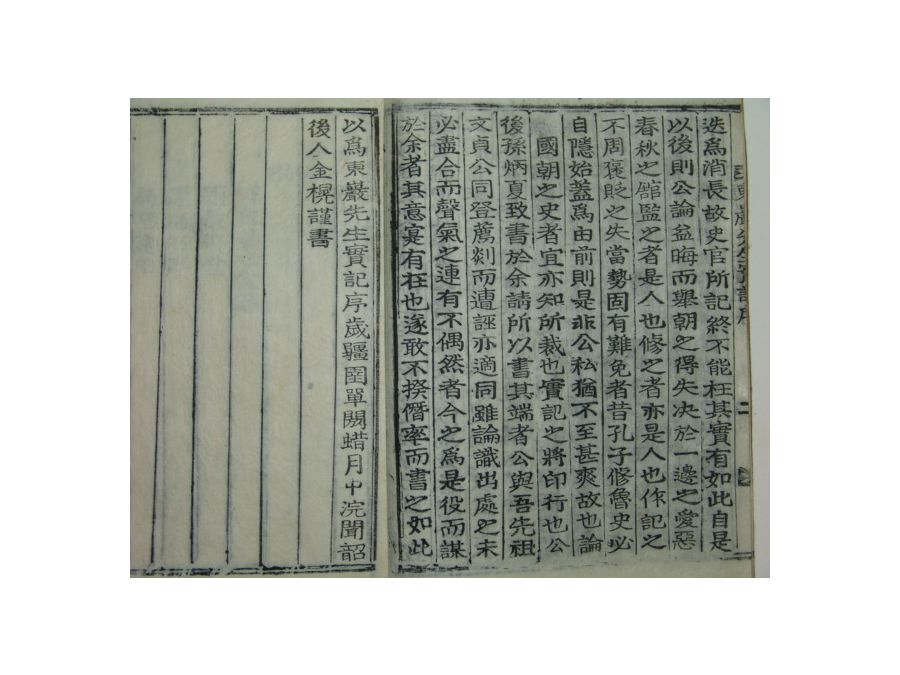 東巖先生實記序
二
迭爲消長故史官所記終不能枉其實有如此自是
以後則公論益晦而擧朝之得失决於一邊之愛惡
春秋之館監之者是人也修之者亦是人也作記之
不周褒貶之失當勢固有難免者昔孔子修魯史必
自隱始蓋爲由前則是非公私猶不至甚爽故也論
國朝之史者宜亦知所裁也實記之將印行也公
後孫炳夏致書於余請所以書其端者公與吾先祖
文貞公同登薦剡而遭誣亦適同雖論識出處之未
必盡合而聲氣之連有不偶然者今之爲是役而謀
於余者其意寔有在也遂敢不揆僭率而書之如此
以爲東巖先生實記序歲彊圉單閼蜡月中浣聞韶
後人金榥謹書